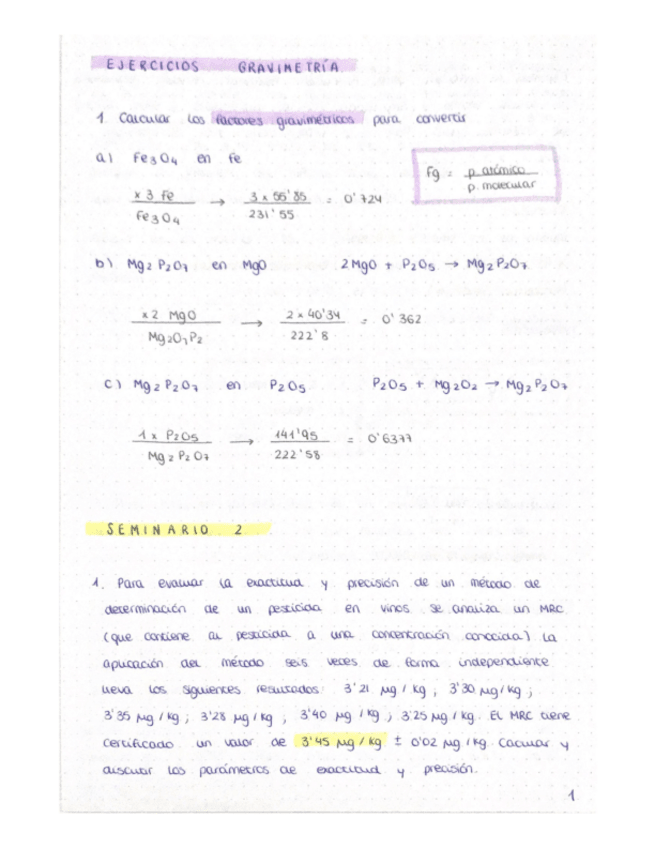 EJERCICIOS GRAVIMETRÍA
1. Calcular los factores gravimétricos para convertir
a) Fe3O4 en Fe
Fg = p. atómico / p. molecular
x 3 Fe / Fe3O4 → 3 x 55'85 / 231'55 = 0'724
b) Mg2P2O7 en MgO 2MgO + P2O5 → Mg2P2O7
x 2 MgO / Mg2O7P2 → 2 x 40'34 / 222'8 = 0'362
c) Mg2P2O7 en P2O5 P2O5 + Mg2O2 → Mg2P2O7
1 x P2O5 / Mg2P2O7 → 141'95 / 222'58 = 0'6377
SEMINARIO 2
1. Para evaluar la exactitud y precisión de un método de
determinación de un pesticida en vinos se analiza un MRC
(que contiene al pesticida a una concentración conocida) La
aplicación del método seis veces de forma independiente
lleva los siguientes resultados: 3'21 µg/kg; 3'30 µg/kg;
3'35 µg/kg; 3'28 µg/kg; 3'40 µg/kg; 3'25 µg/kg. El MRC tiene
certificado un valor de 3'45 µg/kg ± 0'02 µg/kg. Calcular y
discutir los parámetros de exactitud y precisión.
1